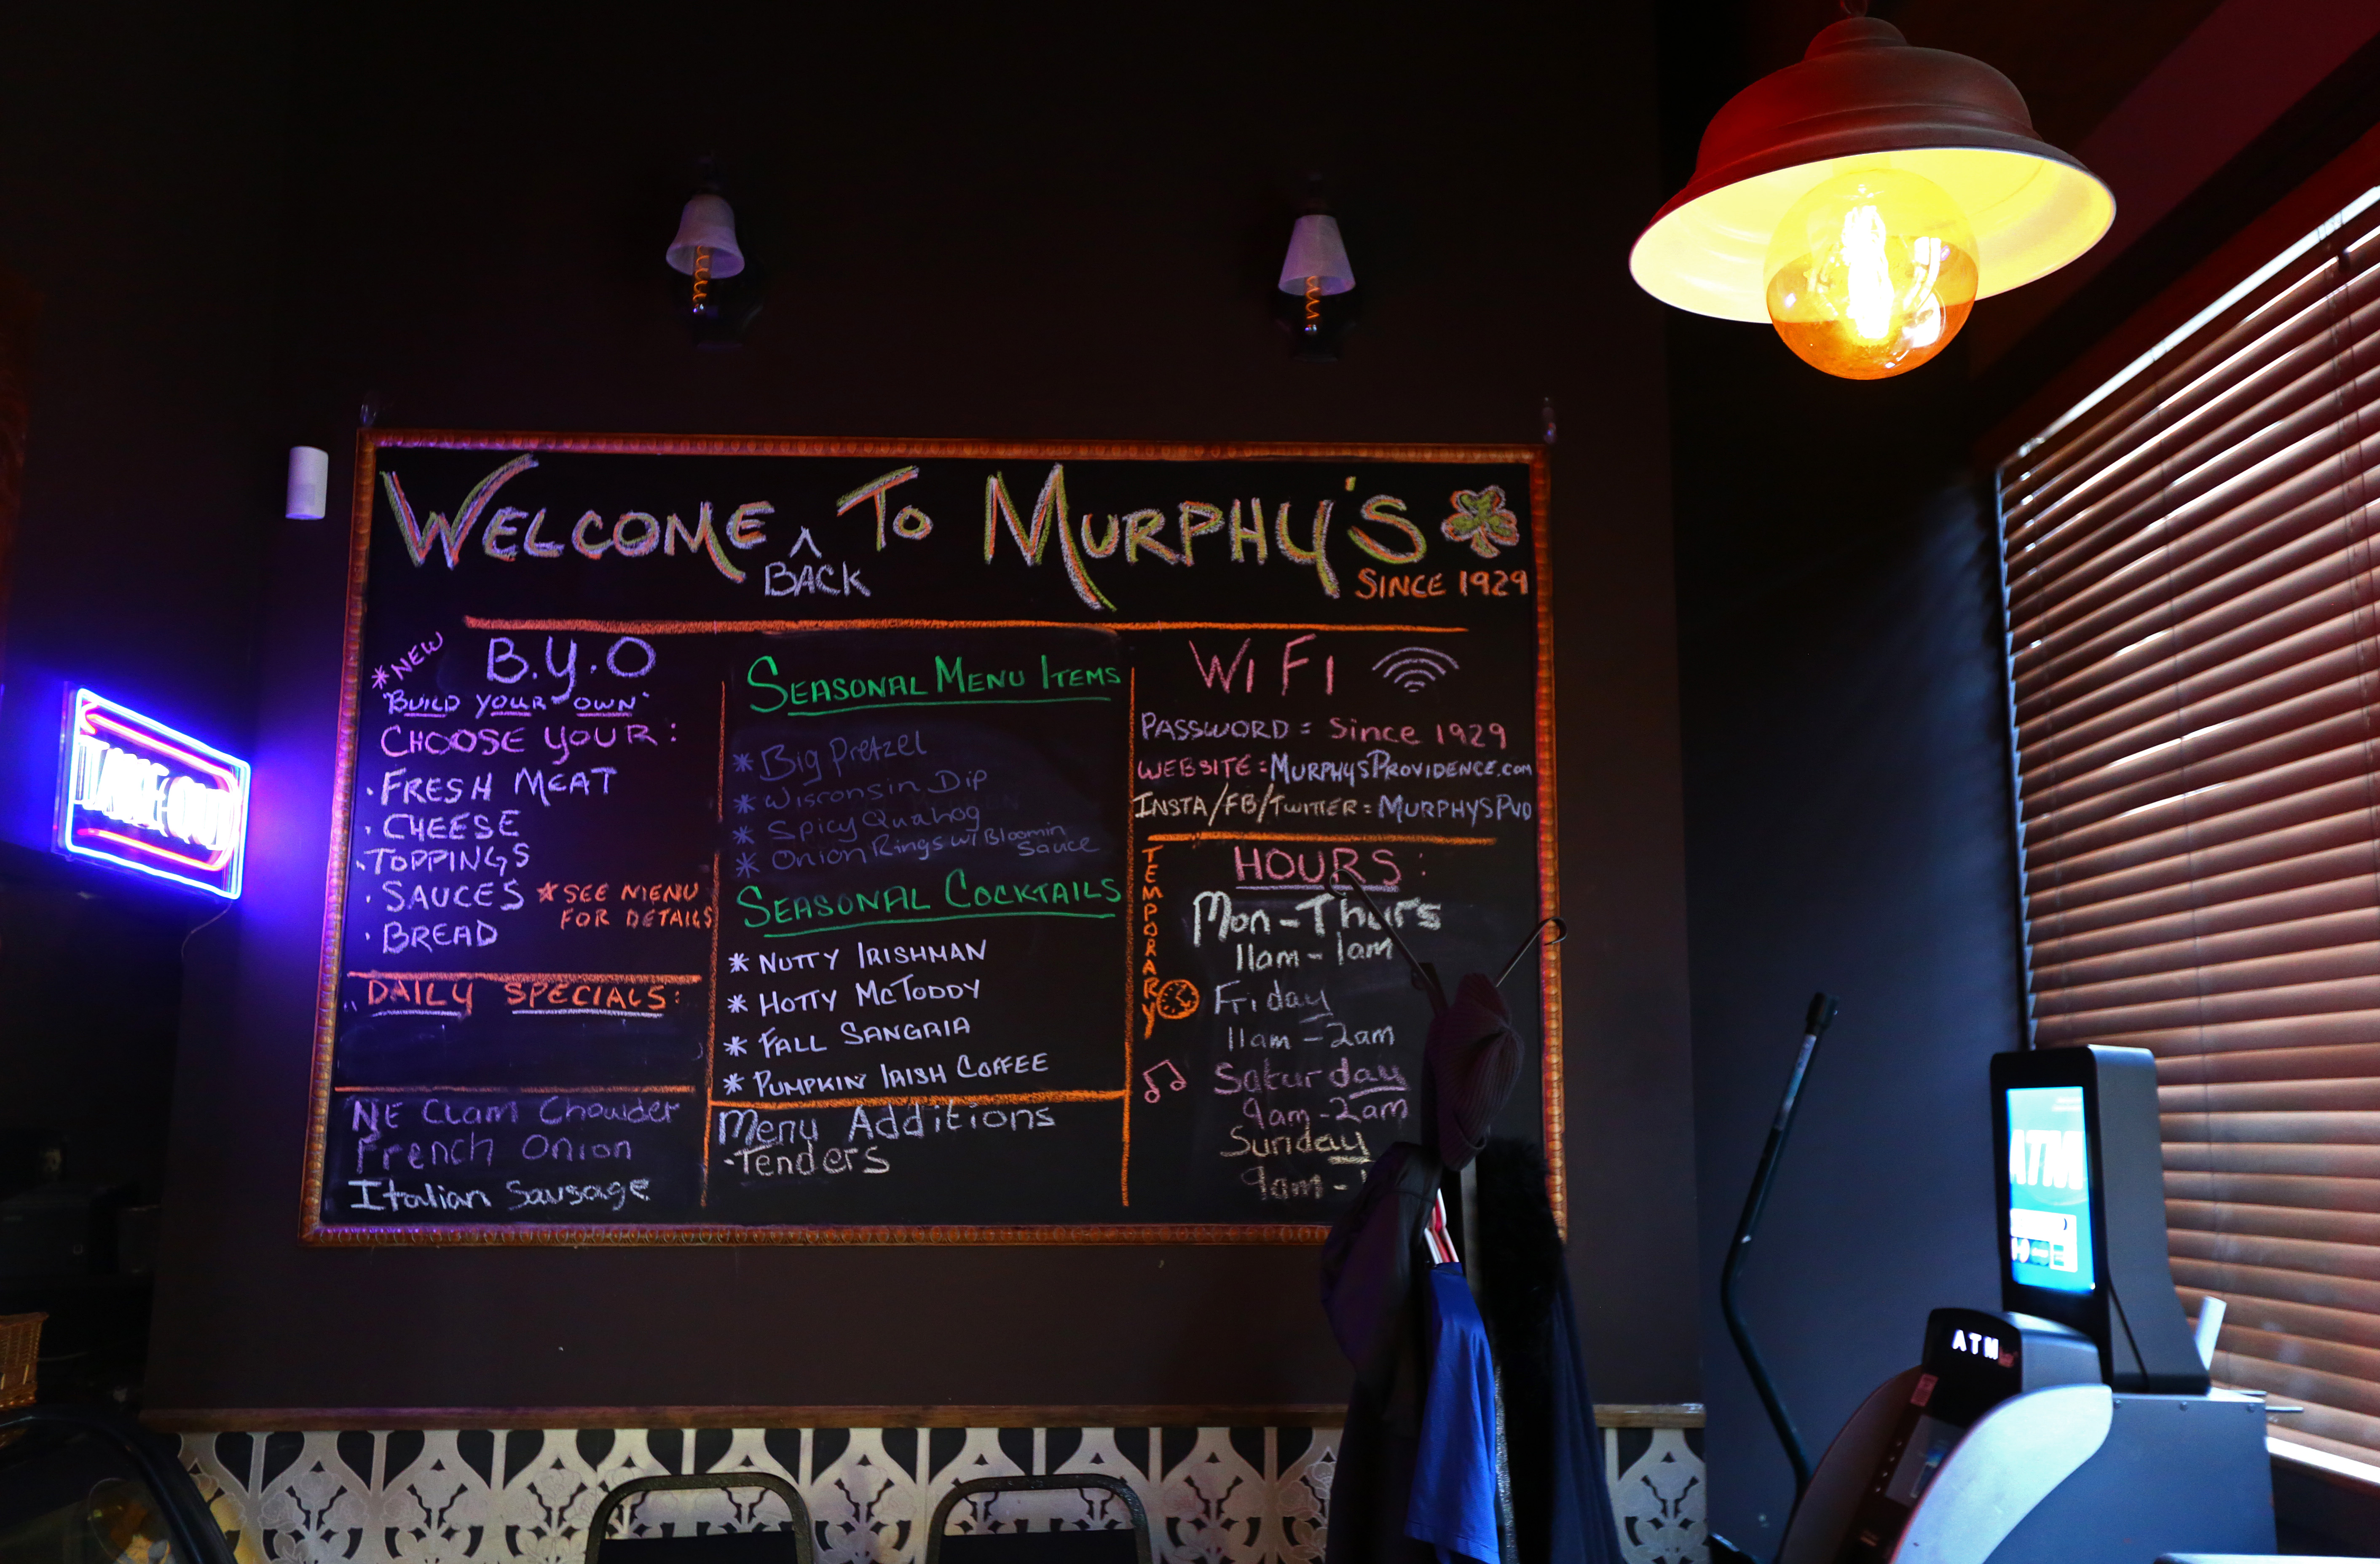 WELCOME ^ TO MURPHY'S
BACK
SINCE 1929
*NEW
B.Y.O
"BUILD YOUR OWN"
CHOOSE YOUR:
· FRESH MEAT
· CHEESE
· TOPPINGS
· SAUCES
* SEE MENU
FOR DETAILS
· BREAD
DAILY SPECIALS:
NE Clam Chowder
French Onion
Italian Sausage
SEASONAL MENU ITEMS
* Big Pretzel
* Wisconsin Dip
* Spicy Quahog
* Onion Rings w/ Bloomin
Sauce
SEASONAL COCKTAILS
* NUTTY IRISHMAN
* HOTTY MCTODDY
* FALL SANGRIA
* PUMPKIN IRISH COFFEE
Menu Additions
·Tenders
WIFI
PASSWORD = Since 1929
WEBSITE: MURPHYSPROVIDENCE.COM
INSTA/FB/TWITTER = MURPHYSPVD
TEMPORARY
HOURS:
Mon-Thurs
11am-1am
Friday
11am-2am
Saturday
9am-2am
Sunday
9am-
TAKE-OUT
ATM
ATM